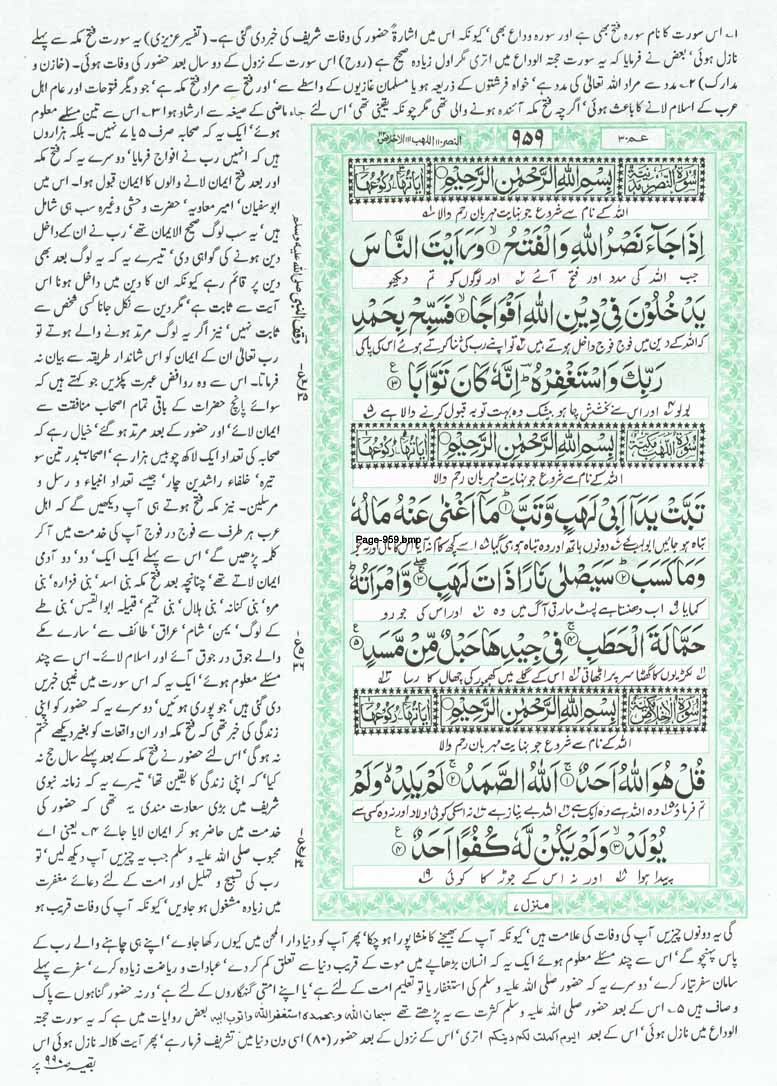 ۱۔ اس سورت کا نام سورہ فتح بھی ہے اور سورہ وداع بھی' کیونکہ اس میں اشارۃً حضور کی وفات شریف کی خبر دی گئی ہے۔ (تفسیر عزیزی) یہ سورت فتح مکہ سے پہلے
نازل ہوئی' بعض نے فرمایا کہ یہ سورت حجتہ الوداع میں اتری مگر اول زیادہ صحیح ہے (روح) اس سورت کے نزول کے دو سال بعد حضور کی وفات ہوئی۔ (خازن و
مدارک) ۲۔ مدد سے مراد اللہ تعالیٰ کی مدد ہے' خواہ فرشتوں کے ذریعہ ہو یا مسلمان غازیوں کے واسطے سے' اور فتح سے مراد فتح مکہ ہے' جو دیگر فتوحات اور عام اہل
عرب کے اسلام لانے کا باعث ہوئی' اگرچہ فتح مکہ آئندہ ہونے والی تھی مگر چونکہ یقینی تھی' اس لئے جاء ماضی کے صیغہ سے ارشاد ہوا ۳۔ اس سے تین مسئلے معلوم
ہوئے' ایک یہ کہ صحابہ صرف ۵ یا ۷ نہیں۔ بلکہ ہزاروں
ہیں کہ انہیں رب نے افواج فرمایا' دوسرے یہ کہ فتح مکہ
اور بعد فتح ایمان لانے والوں کا ایمان قبول ہوا۔ اس میں
ابوسفیان' امیر معاویہ' حضرت وحشی وغیرہ سب ہی شامل
ہیں' یہ سب لوگ صحیح الایمان تھے' رب نے ان کے داخل
دین ہونے کی گواہی دی' تیسرے یہ کہ یہ لوگ بعد بھی
دین پر قائم رہے کیونکہ ان کا دین میں داخل ہونا اس
آیت سے ثابت ہے' مگر دین سے نکل جانا کسی شخص سے
ثابت نہیں' نیز اگر یہ لوگ مرتد ہونے والے ہوتے تو
رب تعالیٰ ان کے ایمان کو اس شاندار طریقہ سے بیان نہ
فرماتا۔ اس سے وہ روافض عبرت پکڑیں جو کہتے ہیں کہ
سوائے پانچ حضرات کے باقی تمام اصحاب منافقت سے
ایمان لائے' اور حضور کے بعد مرتد ہو گئے' خیال رہے کہ
صحابہ کی تعداد ایک لاکھ چوبیس ہزار ہے' اصحاب بدر تین سو
تیرہ' خلفاء راشدین چار' جیسے تعداد انبیاء و رسل و
مرسلین۔ نیز مکہ فتح ہوتے ہی آپ دیکھیں گے کہ اہل
عرب ہر طرف سے فوج در فوج آپ کی خدمت میں آ کر
کلمہ پڑھیں گے' اس سے پہلے ایک ایک' دو' دو آدمی
ایمان لاتے تھے' چنانچہ بعد فتح مکہ بنی اسد' بنی فزارہ' بنی
مرہ' بنی کنانہ' بنی ہلال' بنی تمیم' قبیلہ ابوالقیس' بنی طے
کے لوگ' یمن' شام' عراق' طائف سے' سارے مکے
والے جوق در جوق آئے اور اسلام لائے۔ اس سے چند
مسئلے معلوم ہوئے' ایک یہ کہ اس سورت میں غیبی خبریں
دی گئی ہیں' جو پوری ہوئیں' دوسرے یہ کہ حضور کو اپنی
زندگی کی خبر تھی کہ فتح مکہ اور ان واقعات کو بغیر دیکھے ختم
نہ ہو گی' اس لئے حضور نے فتح مکہ کے بعد پہلے سال حج نہ
کیا' کہ اپنی زندگی کا یقین تھا' تیسرے یہ کہ زمانہ نبوی
شریف میں بڑی سعادت مندی یہ تھی کہ حضور کی
خدمت میں حاضر ہو کر ایمان لایا جائے ۴۔ یعنی اے
محبوب صلی اللہ علیہ وسلم جب یہ چیزیں آپ دیکھ لیں' تو
رب کی تسبیح و تہلیل اور امت کے لئے دعائے مغفرت
میں زیادہ مشغول ہو جاویں' کیونکہ آپ کی وفات قریب ہو
عـم ۳۰
۹۵۹
النصر ۱۱۰ اللهب ۱۱۱ الاخلاص ۱۱۲
سُوْرَةُ النَّصْرِ مَدَنِيَّةٌ
بِسْمِ اللّٰهِ الرَّحْمٰنِ الرَّحِيْمِ
اٰيَاتُهَا ۳ رُكُوْعُهَا ۱
اللہ کے نام سے شروع جو نہایت مہربان رحم والا
اِذَا جَآءَ نَصْرُ اللّٰهِ وَالْفَتْحُ ۱ وَرَاَيْتَ النَّاسَ
جب اللہ کی مدد اور فتح آئے اور لوگوں کو تم دیکھو
يَدْخُلُوْنَ فِيْ دِيْنِ اللّٰهِ اَفْوَاجًا ۲ فَسَبِّحْ بِحَمْدِ
کہ اللہ کے دین میں فوج فوج داخل ہوتے ہیں تو اپنے رب کی ثنا کرتے ہوئے اس کی پاکی
رَبِّكَ وَاسْتَغْفِرْهُ ؕ اِنَّهٗ كَانَ تَوَّابًا ۳
بولو اور اس سے بخشش چاہو بیشک وہ بہت توبہ قبول کرنے والا ہے
سُوْرَةُ اللَّهَبِ مَكِّيَّةٌ
بِسْمِ اللّٰهِ الرَّحْمٰنِ الرَّحِيْمِ
اٰيَاتُهَا ۵ رُكُوْعُهَا ۱
اللہ کے نام سے شروع جو نہایت مہربان رحم والا
تَبَّتْ يَدَاۤ اَبِيْ لَهَبٍ وَّتَبَّ ؕ ۱ مَاۤ اَغْنٰى عَنْهُ مَالُهٗ
تباہ ہو جائیں ابولہب کے دونوں ہاتھ اور وہ تباہ ہو ہی گیا اسے کچھ کام نہ آیا اس کا مال اور نہ جو
Page-959.bmp
وَمَا كَسَبَ ؕ ۲ سَيَصْلٰى نَارًا ذَاتَ لَهَبٍ ۳ وَّامْرَاَتُهٗ ؕ
کمایا اب دھنستا ہے لپٹ مارتی آگ میں وہ اور اس کی جورو
حَمَّالَةَ الْحَطَبِ ۴ فِيْ جِيْدِهَا حَبْلٌ مِّنْ مَّسَدٍ ۵
لکڑیوں کا گٹھا سر پر اٹھاتی اس کے گلے میں کھجور کی چھال کا رسا
سُوْرَةُ الْاِخْلَاصِ مَكِّيَّةٌ
بِسْمِ اللّٰهِ الرَّحْمٰنِ الرَّحِيْمِ
اٰيَاتُهَا ۴ رُكُوْعُهَا ۱
اللہ کے نام سے شروع جو نہایت مہربان رحم والا
قُلْ هُوَ اللّٰهُ اَحَدٌ ۱ اَللّٰهُ الصَّمَدُ ۲ لَمْ يَلِدْ ۙ وَلَمْ
تم فرماؤ وہ اللہ ہے وہ ایک ہے اللہ بے نیاز ہے نہ اس کی کوئی اولاد اور نہ وہ کسی سے
يُوْلَدْ ۳ وَلَمْ يَكُنْ لَّهٗ كُفُوًا اَحَدٌ ۴
پیدا ہوا اور نہ اس کے جوڑ کا کوئی
منزل ۷
وقف النبی صلی اللہ علیہ وسلم
گی یہ دونوں چیزیں آپ کی وفات کی علامت ہیں' کیونکہ آپ کے بھیجنے کا منشا پورا ہو چکا' پھر آپ کو دنیا دار المحن میں کیوں رکھا جاوے' اپنے ہی چاہنے والے رب کے
پاس پہنچو گے' اس سے چند مسئلے معلوم ہوئے ایک یہ کہ انسان بڑھاپے میں موت کے قریب دنیا سے تعلق کم کر دے' عبادات و ریاضت زیادہ کرے' سفر سے پہلے
سامان سفر تیار کرے' دوسرے یہ کہ حضور صلی اللہ علیہ وسلم کی استغفار یا تو تعلیم امت کے لئے ہے' یا اپنے امتی گنہگاروں کے لئے ہے' ورنہ حضور گناہوں سے پاک
و صاف ہیں ۵۔ اس کے بعد حضور صلی اللہ علیہ وسلم کثرت سے یہ پڑھتے تھے سبحان اللہ وبحمدہ استغفر اللہ واتوب الیہ بعض روایات میں ہے کہ یہ سورت حجتہ
الوداع میں نازل ہوئی' اس کے بعد الیوم اکملت لکم دینکم اتری' اس کے نزول کے بعد حضور (۸۰) اسی دن دنیا میں تشریف فرما رہے' پھر آیت کلالہ نازل ہوئی اس
بقیہ ص ۹۹۰ پر